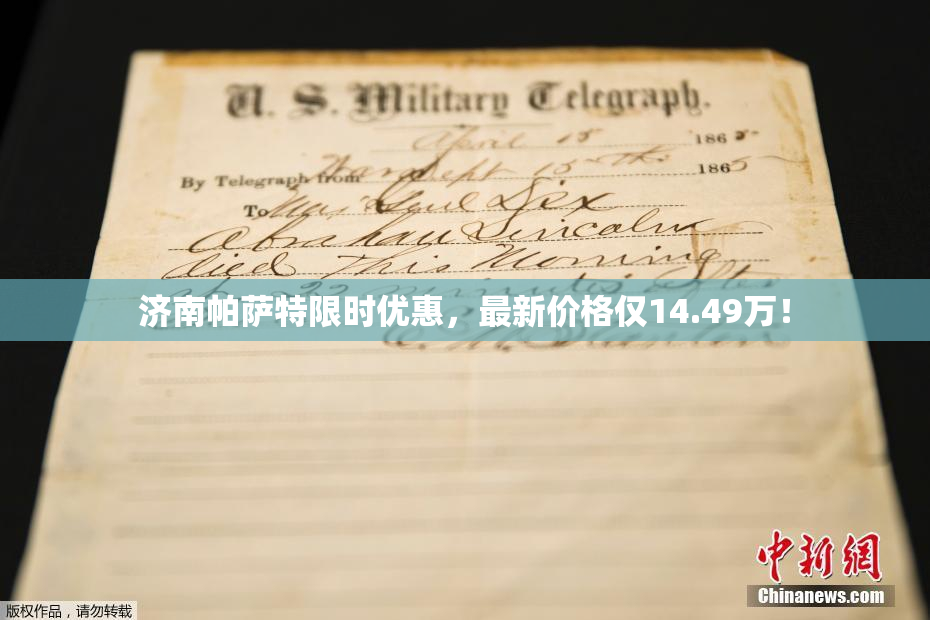 U. S. Military Telegraph.
April 15 1865
By Telegraph from War Dept 15th 1865
To Maj Genl Dix
Abraham Lincoln
died This Morning
22 minutes after
济南帕萨特限时优惠，最新价格仅14.49万！
E. M. Stanton
中新网
Chinanews.com
版权作品，请勿转载